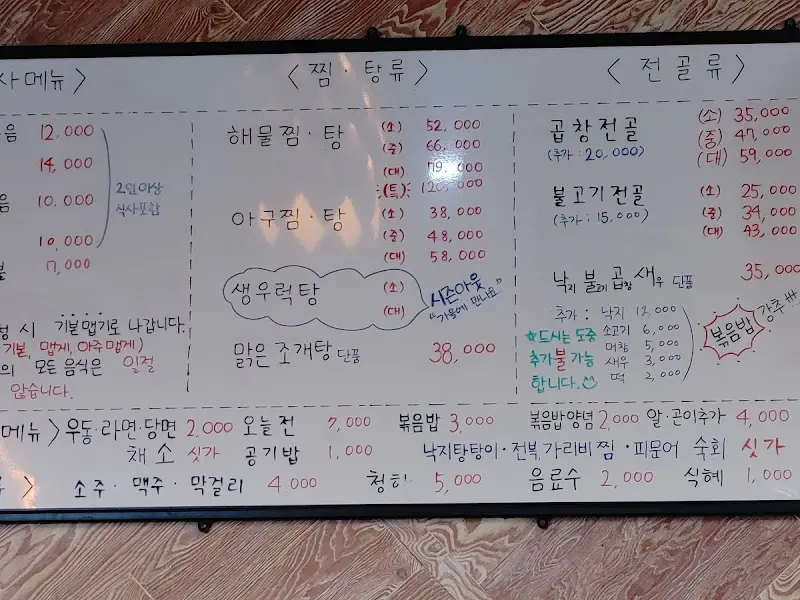 사메뉴 〉 〈 찜 · 탕류 〉 〈 전골류 〉
음 12,000
14,000
음 10,000
10,000
7,000
2인이상
식사포함
해물찜 · 탕 (소) 52,000
(중) 66,000
(대) 79,000
(특)
아구찜 · 탕 (소) 38,000
(중) 48,000
(대) 58,000
생우럭탕 (소)
(대)
시즌아웃
"가을에 만나요"
맑은 조개탕 단품 38,000
곱창전골 (소) 35,000
(추가 : 20,000) (중) 47,000
(대) 59,000
불고기전골 (소) 25,000
(추가 : 15,000) (중) 34,000
(대) 43,000
낙지 불고기 곱창 새우 단품 35,000
추가 : 낙지 12,000
소고기 6,000
야채 5,000
새우 3,000
떡 2,000
볶음밥 강추!!!
★드시는 도중
추가불가능
합니다.
시 기본맵기로 나갑니다.
기본, 맵게, 아주맵게)
의 모든 음식은 일절
않습니다.
메뉴 〉 우동·라면·당면 2,000 오늘전 7,000 볶음밥 3,000 볶음밥양념 2,000 알·곤이추가 4,000
채소 싯가 공기밥 1,000 낙지탕탕이·전복가리비찜·피문어 숙회 싯가
〉 소주 · 맥주 · 막걸리 4000 청하 5,000 음료수 2,000 식혜 1,000